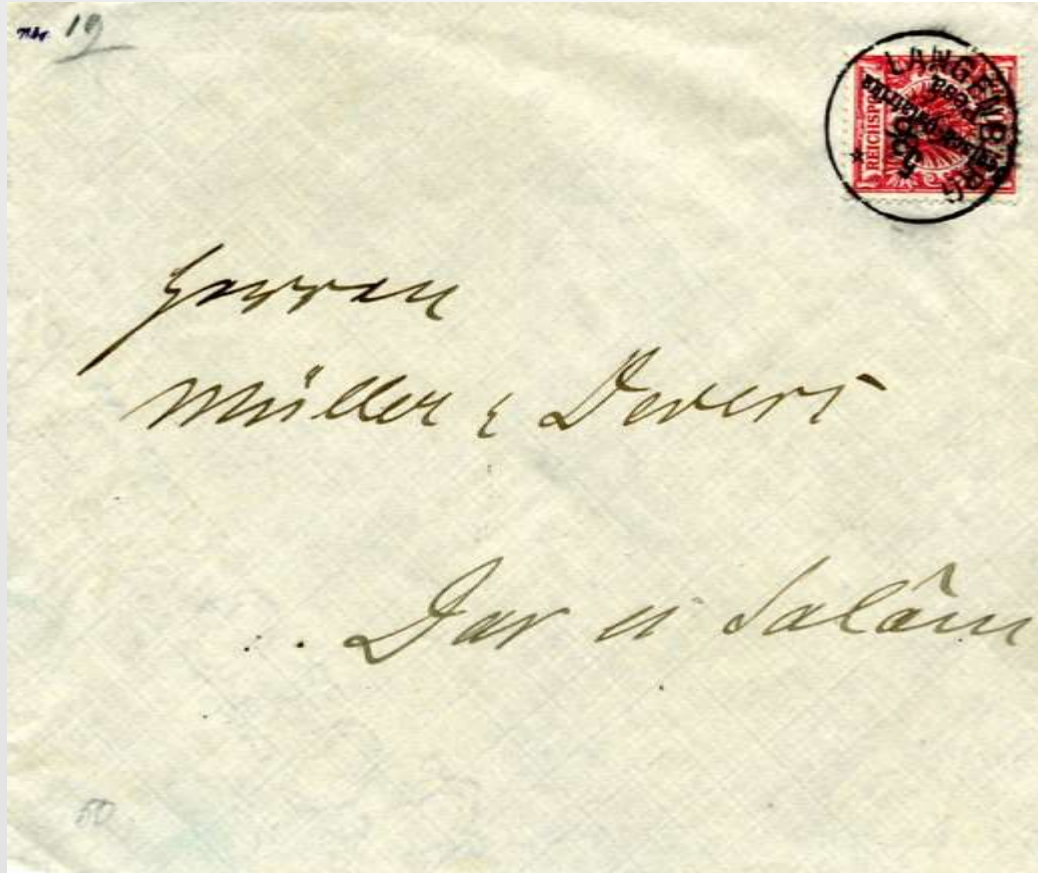 19
LANGENBURG
REICHSPOST
5 Pesa
Herren
Müller & Devers
Dar es Salâm
50